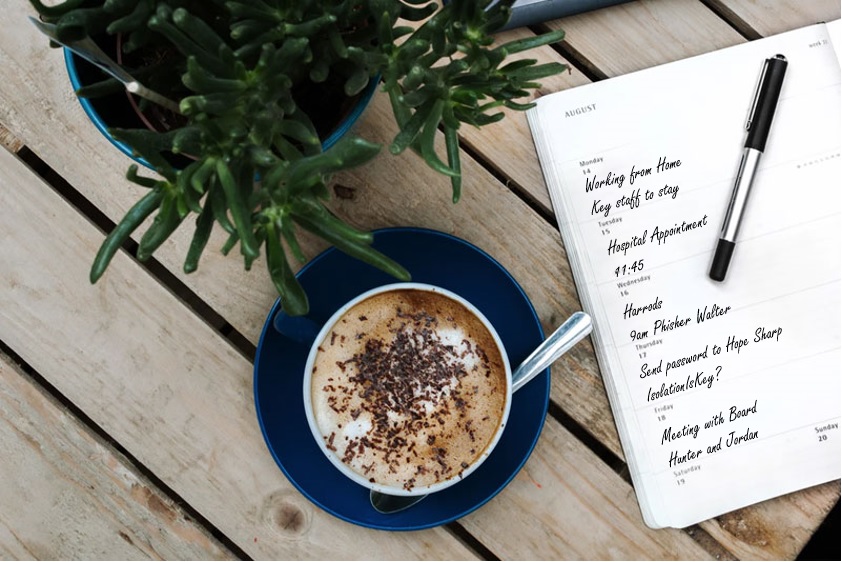 week 33
AUGUST
Monday
14
Working from Home
Key staff to stay
Tuesday
15
Hospital Appointment
11:45
Wednesday
16
Harrods
9am Phisher Walter
Thursday
17
Send password to Hope Sharp
IsolationIsKey?
Friday
18
Meeting with Board
Hunter and Jordan
Saturday
19
Sunday
20